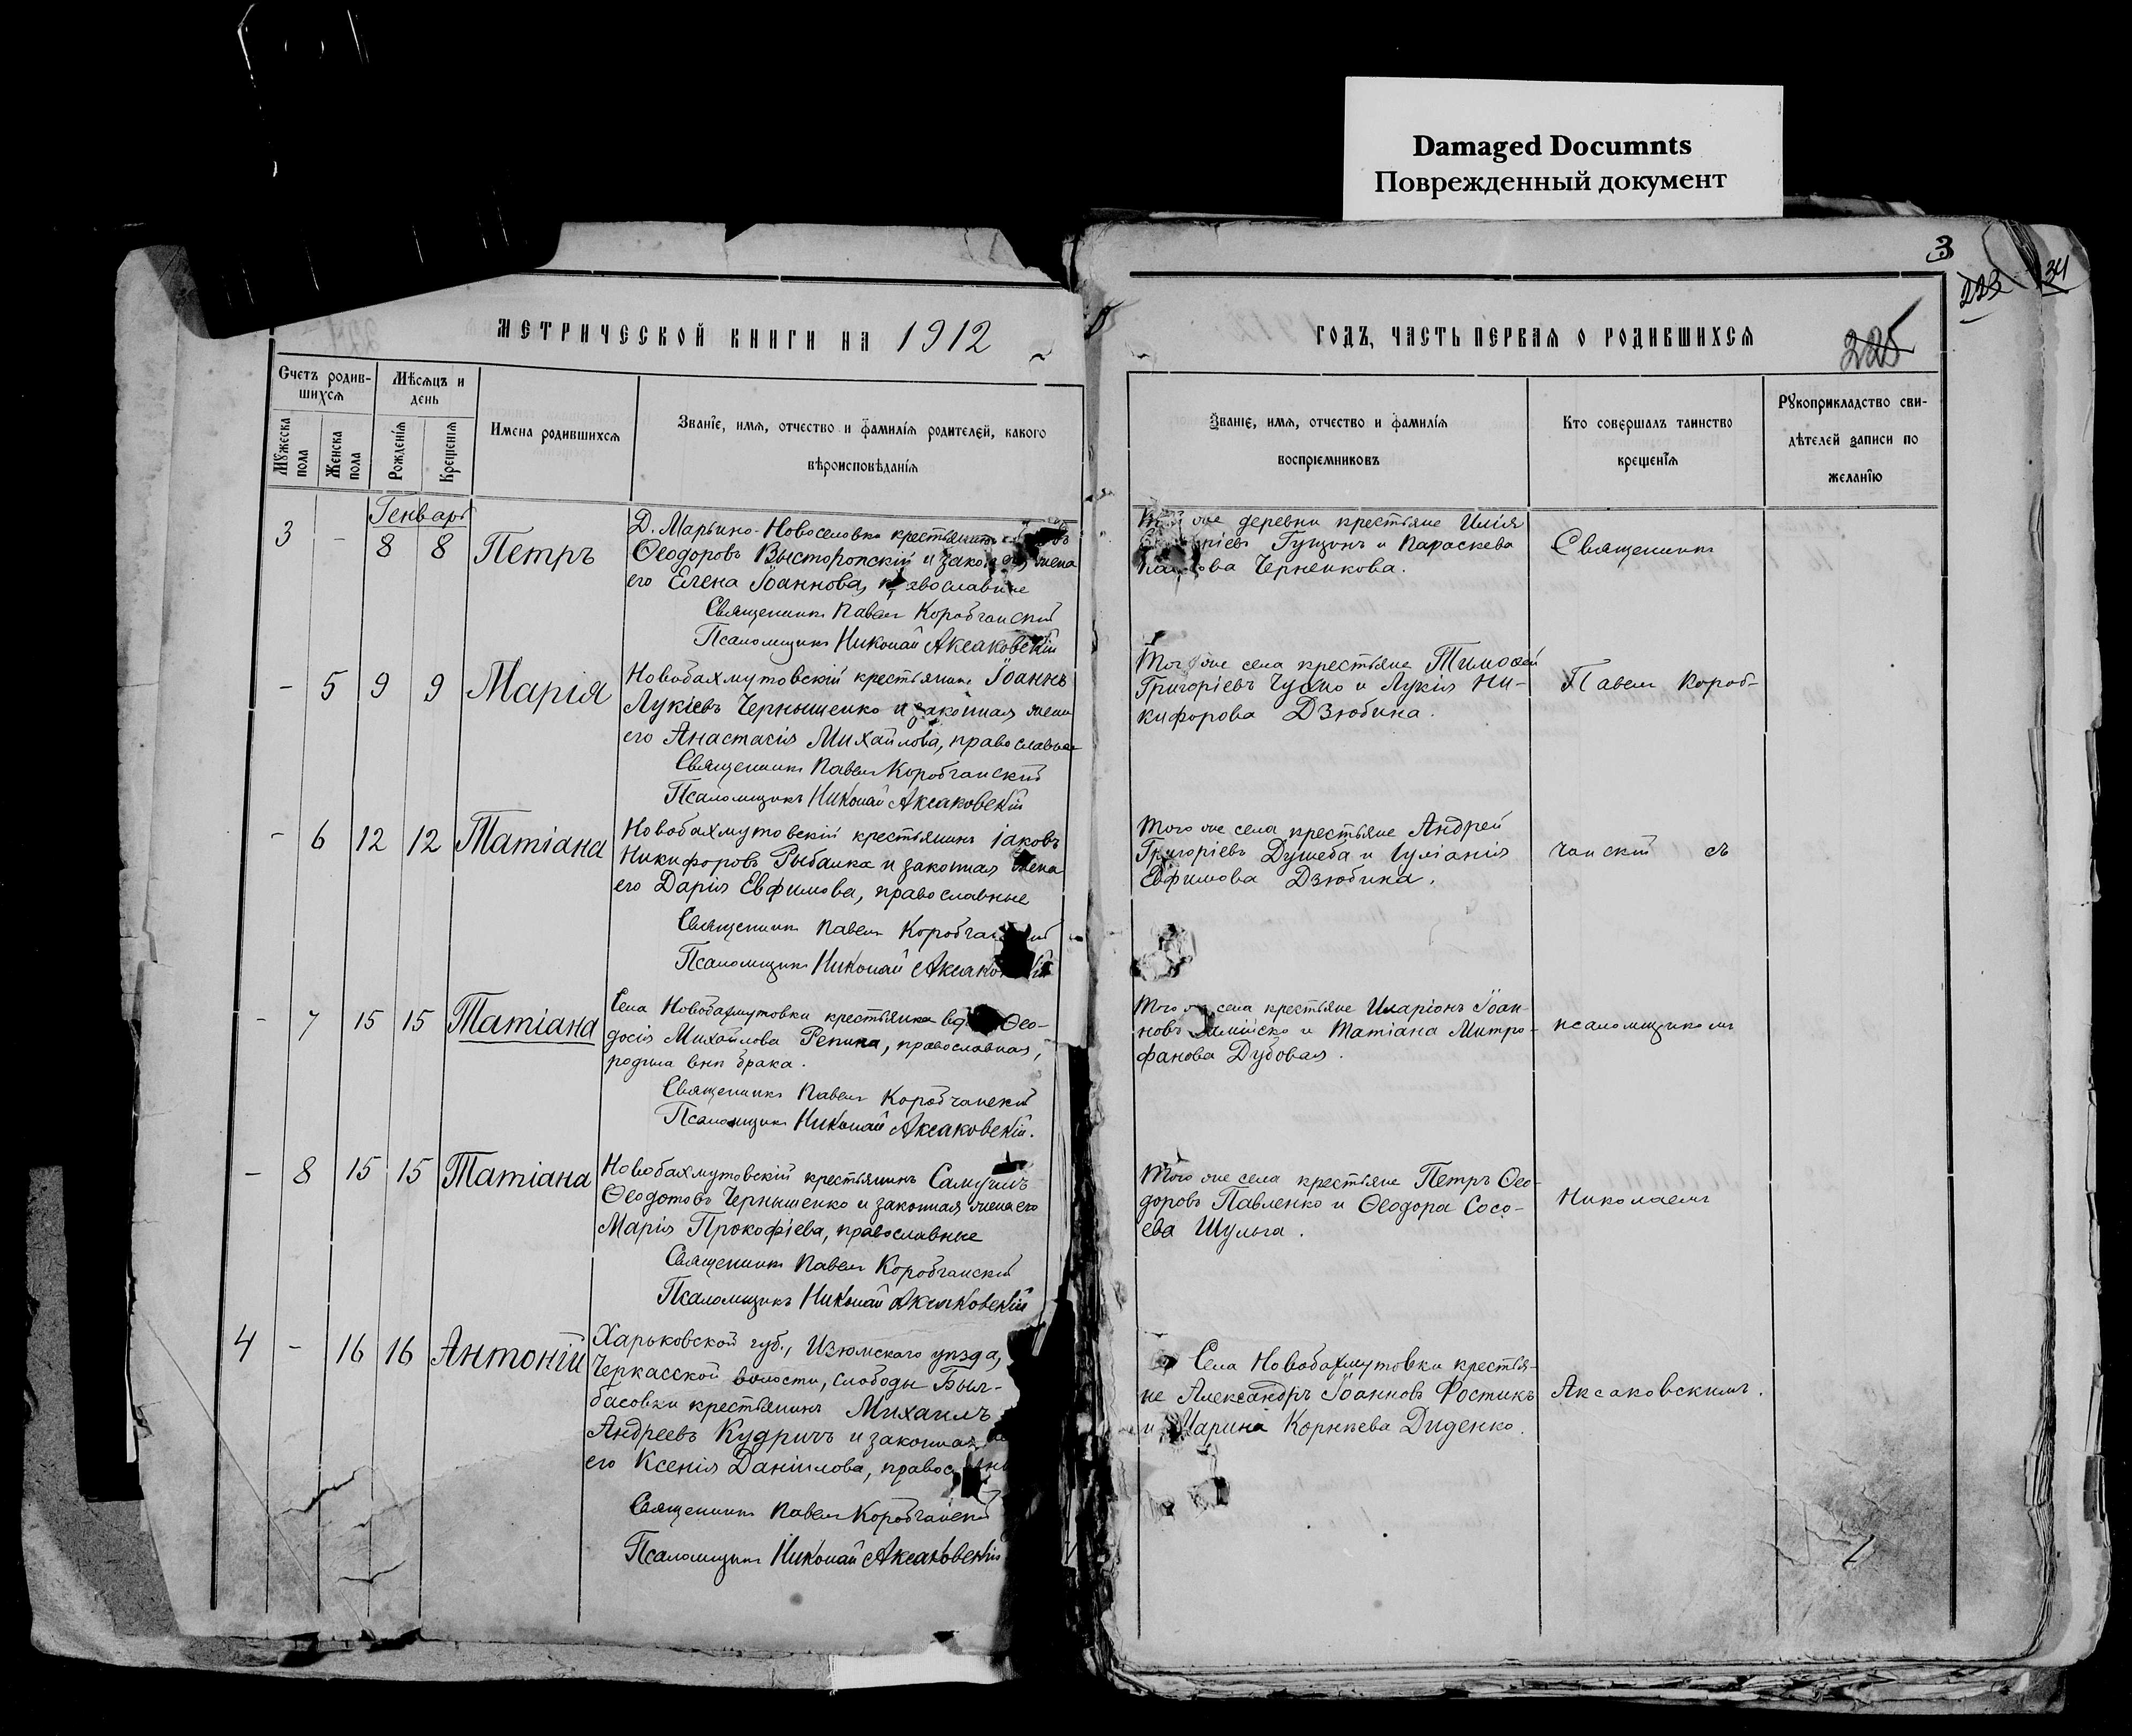 Damaged Documnts
Поврежденный документ
3
223
34
МЕТРИЧЕСКОЙ КНИГИ НА 1912
ГОДЪ, ЧАСТЬ ПЕРВАЯ О РОДИВШИХСЯ
225
Счетъ родив-
шихся
Мѣсяцъ и
день
Мужеска пола
Женска пола
Рожденія
Крещенія
Имена родившихся
Званіе, имя, отчество и фамилія родителей, какого
вѣроисповѣданія
Званіе, имя, отчество и фамилія
воспріемниковъ
Кто совершалъ таинство
крещенія
Рукоприкладство сви-
дѣтелей записи по
желанію
Генварь
3 - 8 8 Петръ
Д. Марьино-Новоселовка крестьянинъ
Ѳеодоровъ Высторопскій и законная жена
его Елена Іоаннова, православные
Священникъ Павелъ Коробчанскій
Псаломщикъ Николай Аксаковскій
же деревни крестьяне Илія
Гущинъ и Параскева
Черненкова.
Священникъ
- 5 9 9 Марія
Новобахмутовскій крестьянинъ Іоаннъ
Лукіевъ Чернышенко и законная жена
его Анастасія Михайлова, православные
Священникъ Павелъ Коробчанскій
Псаломщикъ Николай Аксаковскій
Того же села крестьяне Тимоѳей
Григоріевъ и Лукія Ни-
кифорова Дзюбина.
Павелъ Короб-
- 6 12 12 Татіана
Новобахмутовскій крестьянинъ Іаковъ
Никифоровъ Рыбалка и законная жена
его Дарія Евфимова, православные
Священникъ Павелъ Коробчанскій
Псаломщикъ Николай Аксаковскій
Того же села крестьяне Андрей
Григоріевъ Душеба и Іуліанія
Евфимова Дзюбина.
чанскій съ
- 7 15 15 Татіана
Села Новобахмутовки крестьянка Ѳео-
досія Михайлова Репина, православная,
родила внѣ брака.
Священникъ Павелъ Коробчанскій
Псаломщикъ Николай Аксаковскій.
Того же села крестьяне Иларіонъ Іоан-
новъ и Татіана Митро-
фанова Дубовая.
псаломщикомъ
- 8 15 15 Татіана
Новобахмутовскій крестьянинъ Самуилъ
Ѳеодотовъ Чернышенко и законная жена его
Марія Прокофіева, православные
Священникъ Павелъ Коробчанскій
Псаломщикъ Николай Аксаковскій
Того же села крестьяне Петръ Ѳео-
доровъ Павленко и Ѳеодора Сосо-
ева Шульга.
Николаемъ
4 - 16 16 Антоній
Харьковской губ., Изюмскаго уѣзда,
Черкасской волости, слободы Был-
басовки крестьянинъ Михаилъ
Андреевъ Кудричъ и законная
его Ксенія Даніилова,
Священникъ Павелъ Коробчанскій
Псаломщикъ Николай Аксаковскій
Села Новобахмутовки крестья-
не Александръ Іоанновъ Фостикъ
и Марина Корнѣева Диденко.
Аксаковскимъ.